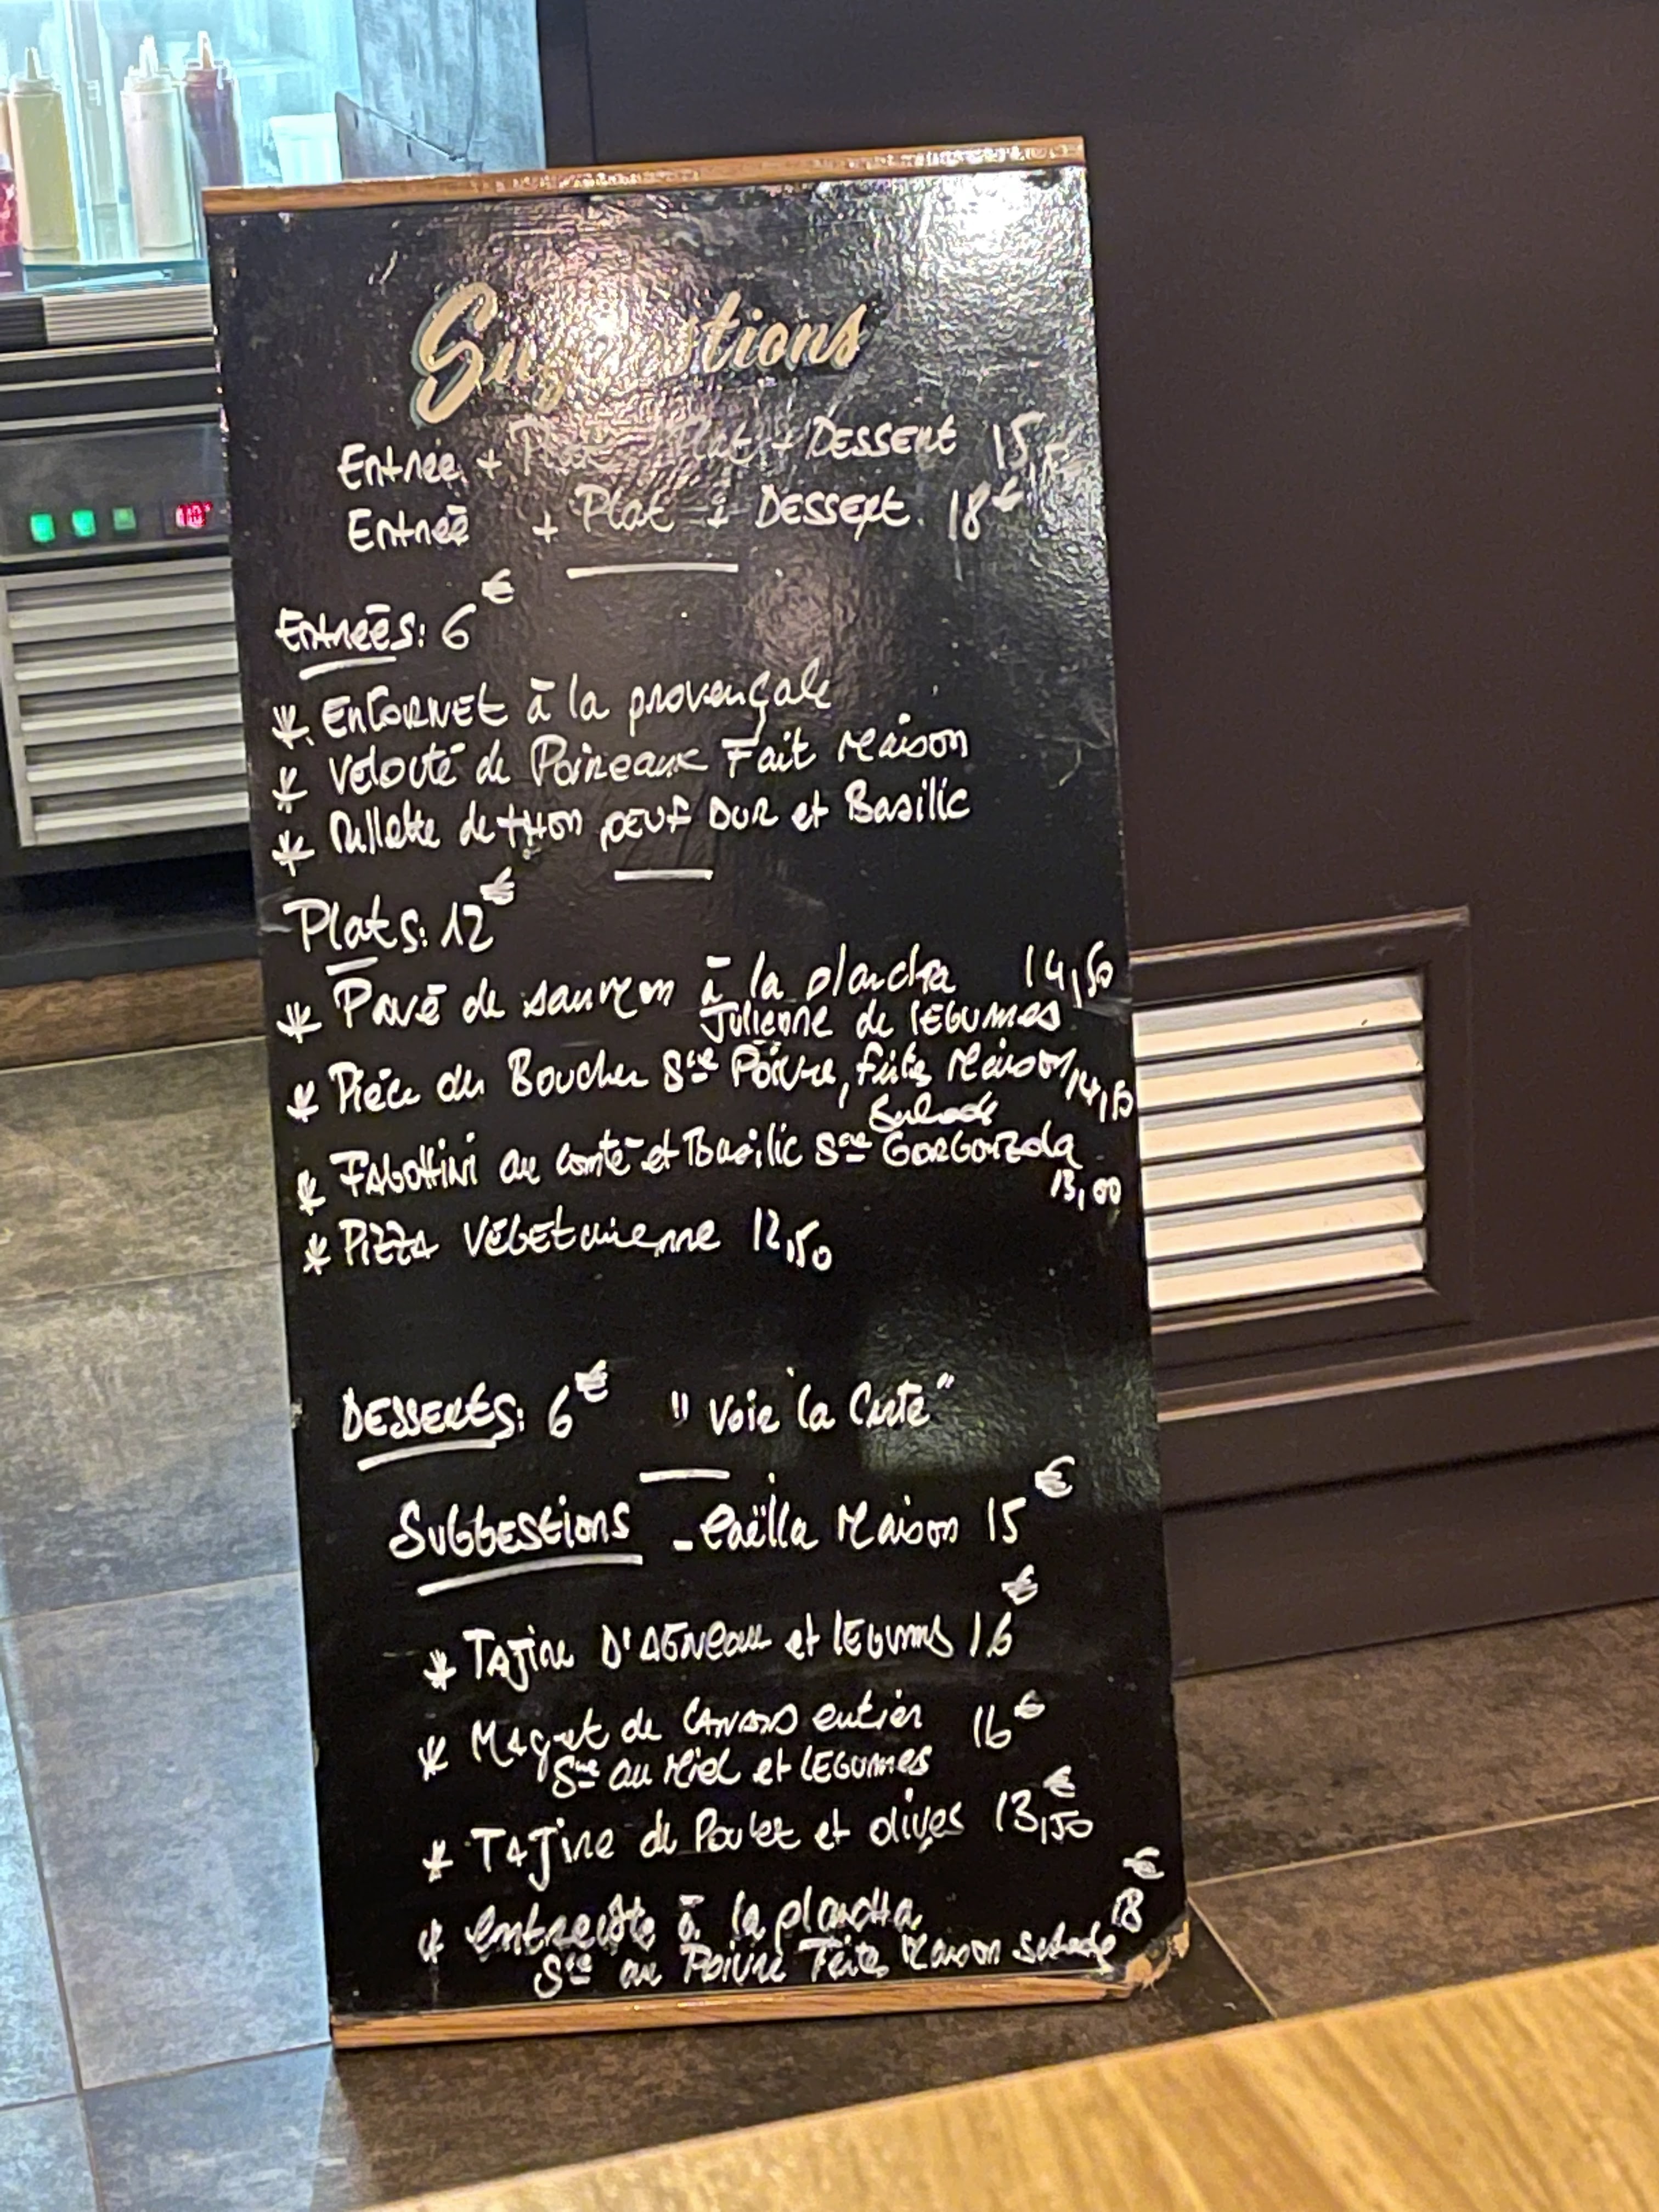 Suggestions
Entrée + Plat Plat + DESSERT 15,50
Entrée + Plat + DESSERT 18€
Entrées: 6€
* EnCORNEt à la provençale
* Velouté de Poireaux Fait Maison
* Rillette de tHon oeuf DUR et Basilic
Plats: 12€
* Pavé de saumon à la plancha 14,50
Julienne de lEGumes
* Pièce du Boucher Sce Poivre, frites Maison 14,50
Salade
* FAGOttini au comté et Basilic Sce GORGONZola
13,00
* PIZZA VEGEtarienne 12,50
DESSERtS: 6€ "Voir la Carte"
SUGGEStions - Paëlla Maison 15€
* TAJine D'AGNeau et lEGUmes 16€
* Magret de CANARD entier 16€
Sce au Miel et lEGUMES
* TAJine de Poulet et olives 13,50€
* entrecôte à la plancHa 18€
Sce au Poivre Frites Maison Salade